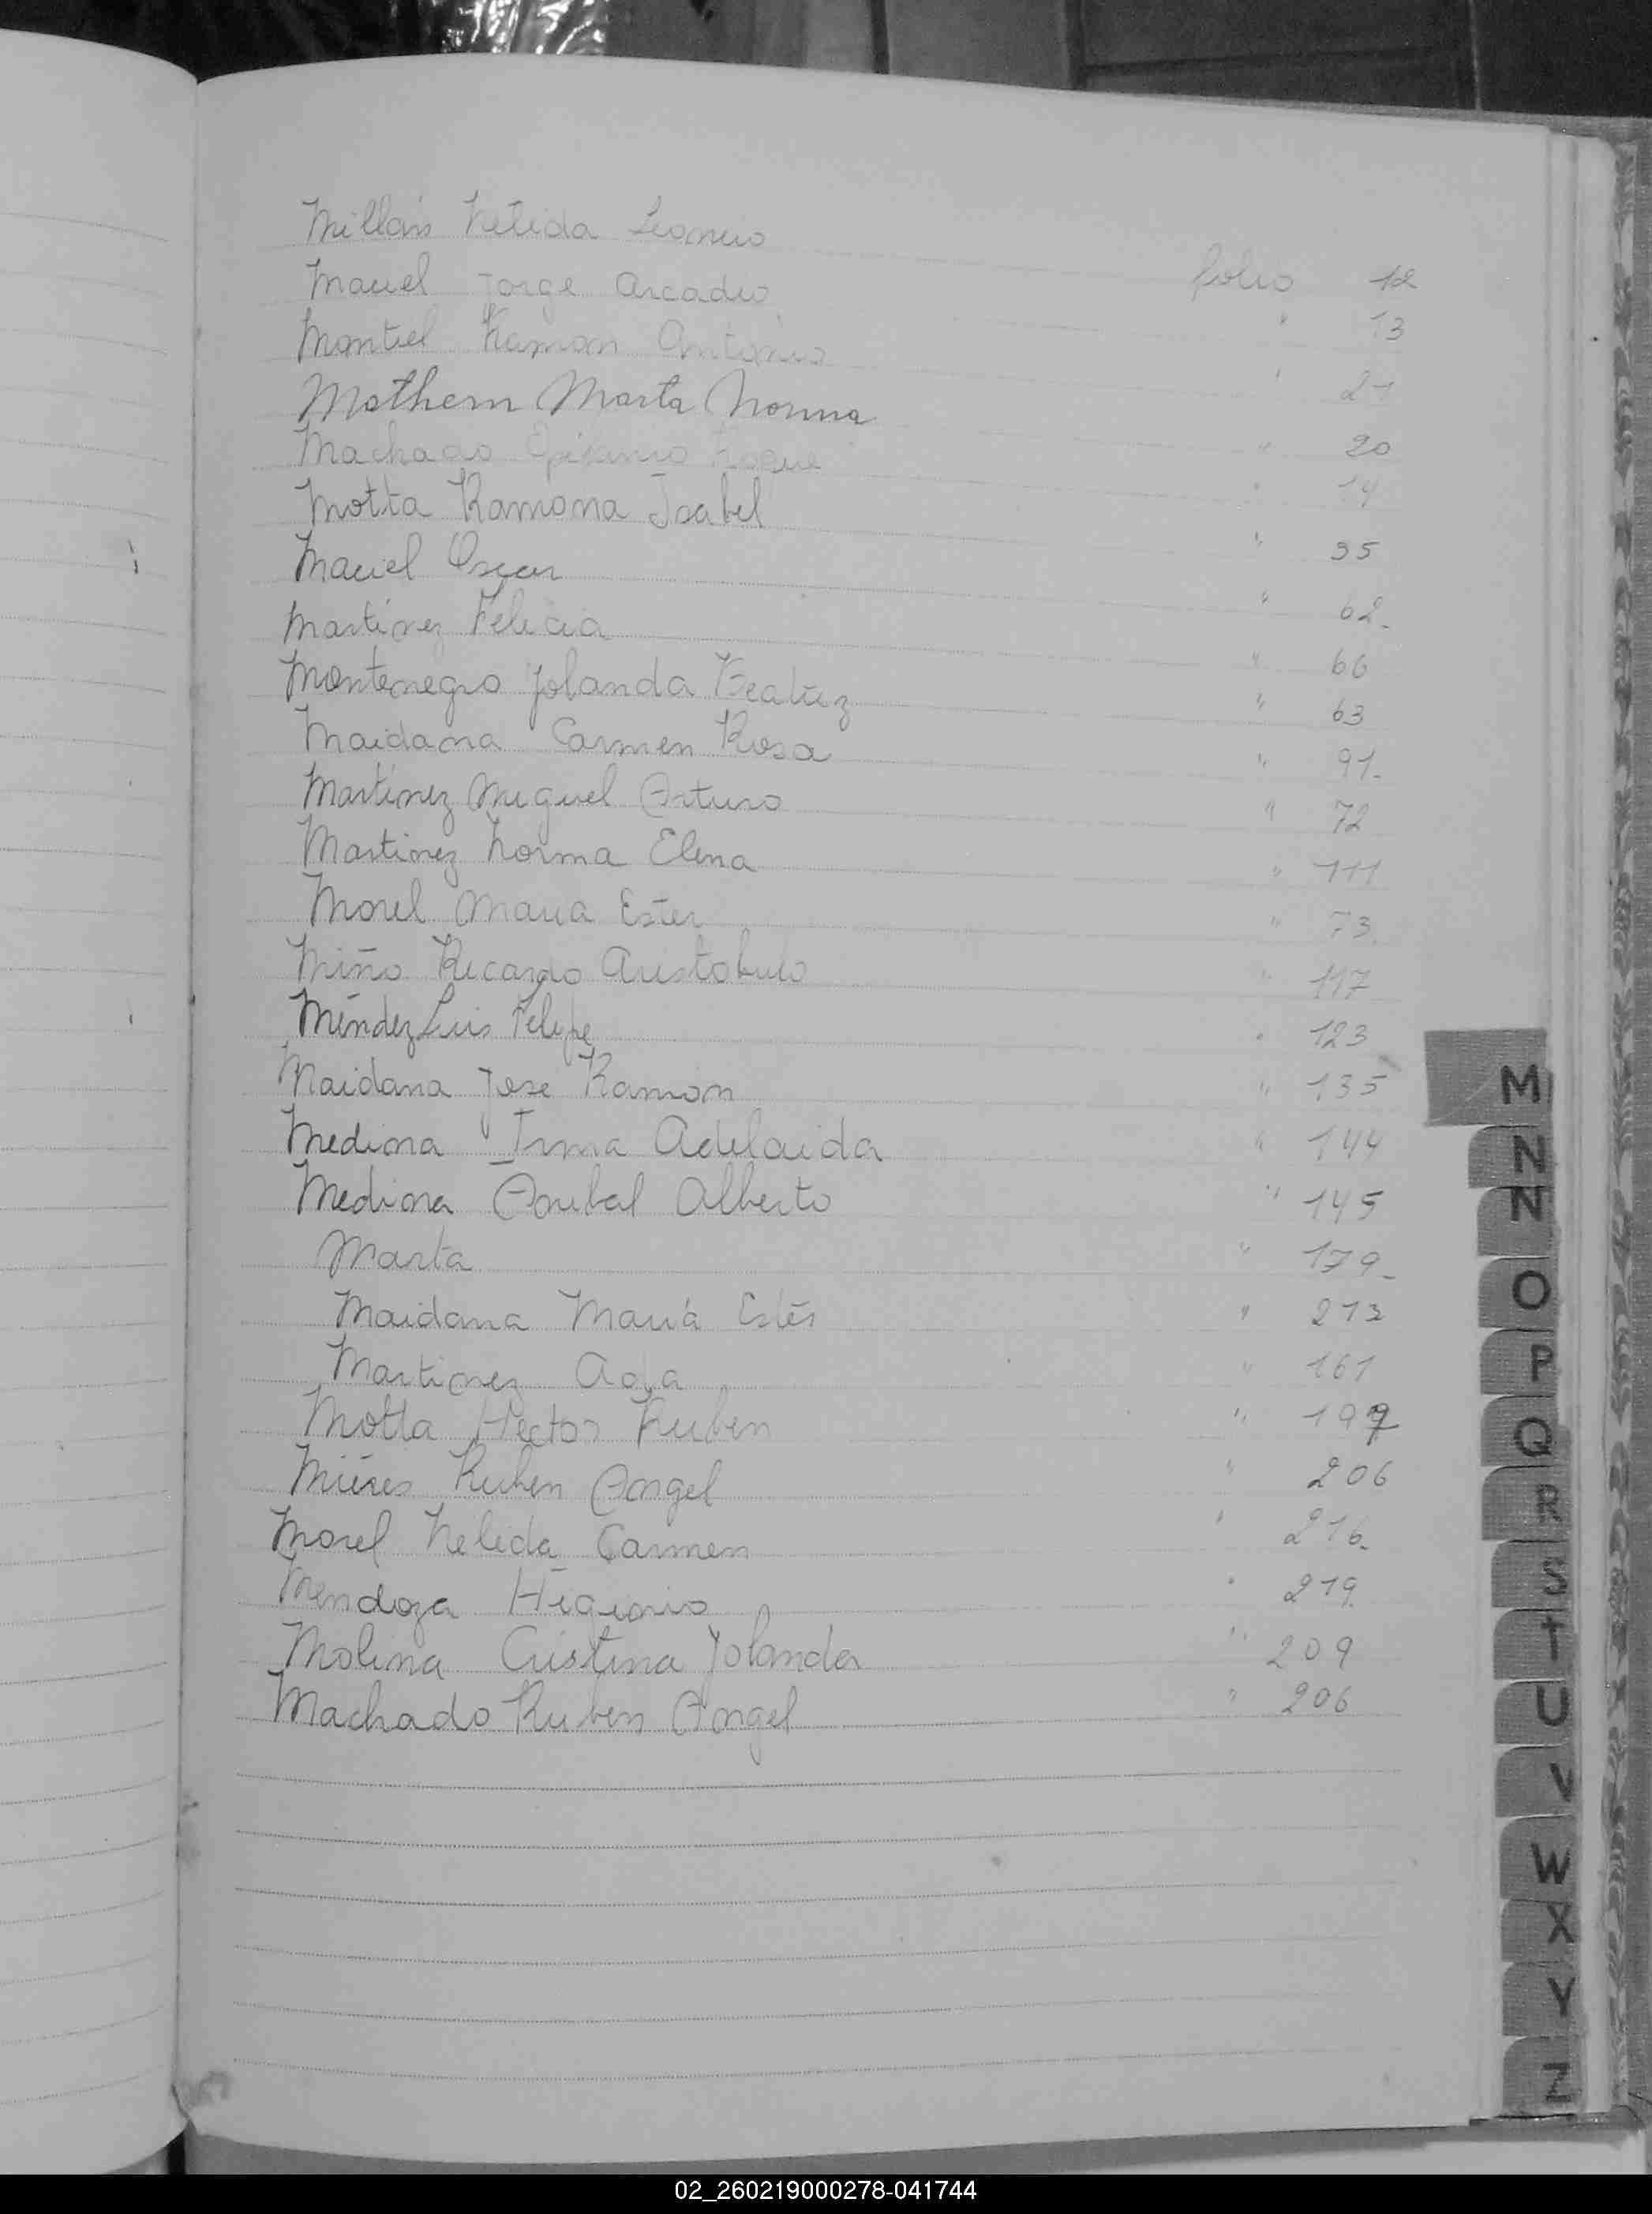 Millán Nélida Leoncio folio 12
Maciel Jorge Arcadio " 13
Montiel Ramon Antonio " 21
Mathern Marta Norma " 20
Machado Epifanio Roque " 14
Motta Ramona Isabel " 35
Maciel Oscar " 62
Martínez Felicia " 66
Montenegro Yolanda Beatriz " 63
Maidana Carmen Rosa " 91
Martínez Miguel Arturo " 72
Martinez Norma Elena " 111
Morel Maria Ester " 73
Miño Ricardo Aristobulo " 117
Méndez Luis Felipe " 123
Maidana Jose Ramon " 135
Medina Irma Adelaida " 144
Medina Anibal Alberto " 145
Marta " 179
Maidana María Estér " 213
Martinez Ada " 161
Motta Hector Ruben " 197
Miéres Ruben Angel " 206
Morel Nelida Carmen " 216
Mendoza Higinio " 219
Molina Cristina Yolanda " 209
Machado Ruben Angel " 206
M
N
N
O
P
Q
R
S
T
U
V
W
X
Y
Z
02_260219000278-041744